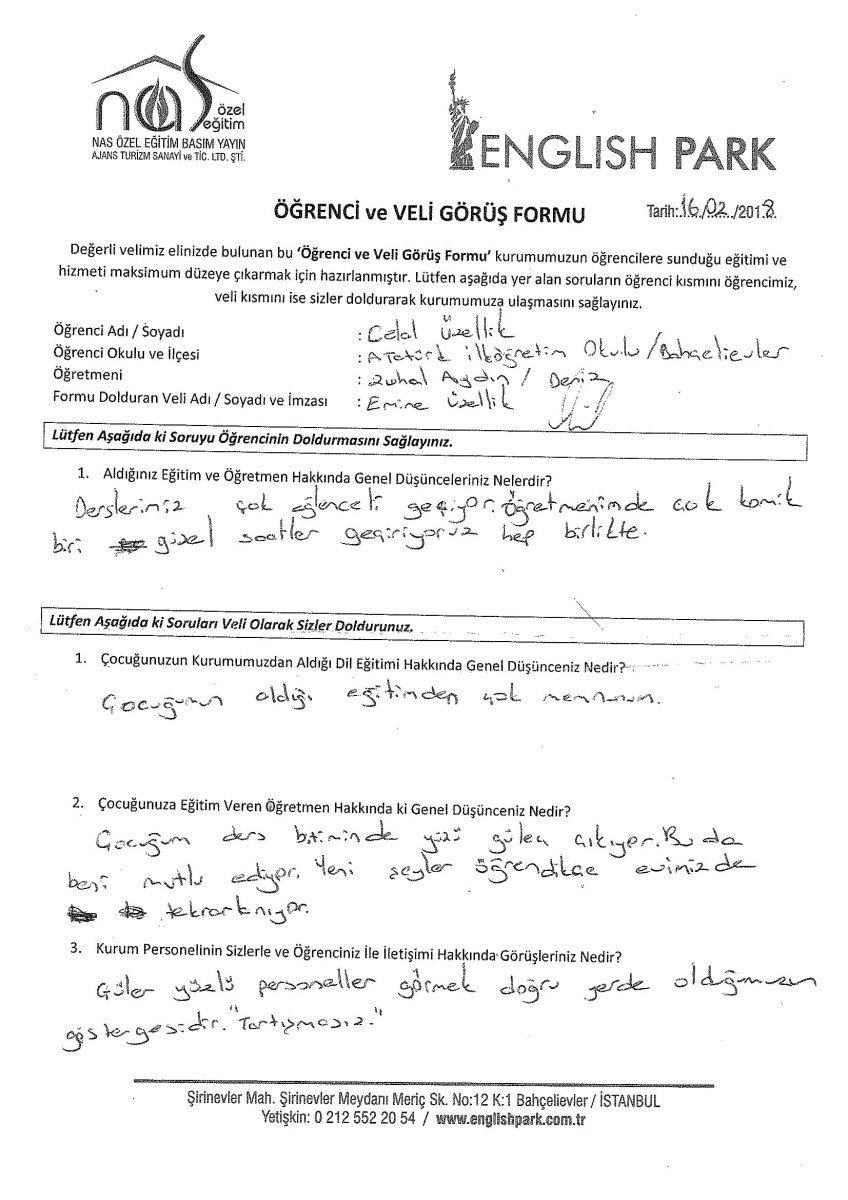 nas özel eğitim
NAS ÖZEL EĞİTİM BASIM YAYIN
AJANS TURİZM SANAYİ ve TİC. LTD. ŞTİ.
ENGLISH PARK
ÖĞRENCİ ve VELİ GÖRÜŞ FORMU
Tarih:16/02/2018
Değerli velimiz elinizde bulunan bu ‘Öğrenci ve Veli Görüş Formu’ kurumumuzun öğrencilere sunduğu eğitimi ve
hizmeti maksimum düzeye çıkarmak için hazırlanmıştır. Lütfen aşağıda yer alan soruların öğrenci kısmını öğrencimiz,
veli kısmını ise sizler doldurarak kurumumuza ulaşmasını sağlayınız.
Öğrenci Adı / Soyadı : Celal Üzellik
Öğrenci Okulu ve İlçesi : Atatürk ilköğretim Okulu / Bahçelievler
Öğretmeni : Zuhal Aydın / Deniz
Formu Dolduran Veli Adı / Soyadı ve İmzası : Emine Üzellik
Lütfen Aşağıda ki Soruyu Öğrencinin Doldurmasını Sağlayınız.
1. Aldığınız Eğitim ve Öğretmen Hakkında Genel Düşünceleriniz Nelerdir?
Derslerimiz çok eğlenceli geçiyor. Öğretmenimde çok komik
biri güzel saatler geçiriyoruz hep birlikte.
Lütfen Aşağıda ki Soruları Veli Olarak Sizler Doldurunuz.
1. Çocuğunuzun Kurumumuzdan Aldığı Dil Eğitimi Hakkında Genel Düşünceniz Nedir?
Çocuğumun aldığı eğitimden çok memnunum.
2. Çocuğunuza Eğitim Veren Öğretmen Hakkında ki Genel Düşünceniz Nedir?
Çocuğum ders bitiminde yüzü güleç çıkıyor. Bu da
beni mutlu ediyor. Yeni şeyler öğrendikçe evimizde
tekrarlanıyor.
3. Kurum Personelinin Sizlerle ve Öğrenciniz İle İletişimi Hakkında Görüşleriniz Nedir?
Güler yüzlü personeller görmek doğru yerde olduğumuzun
göstergesidir. "Tartışmasız."
Şirinevler Mah. Şirinevler Meydanı Meriç Sk. No:12 K:1 Bahçelievler / İSTANBUL
Yetişkin: 0 212 552 20 54 / www.englishpark.com.tr